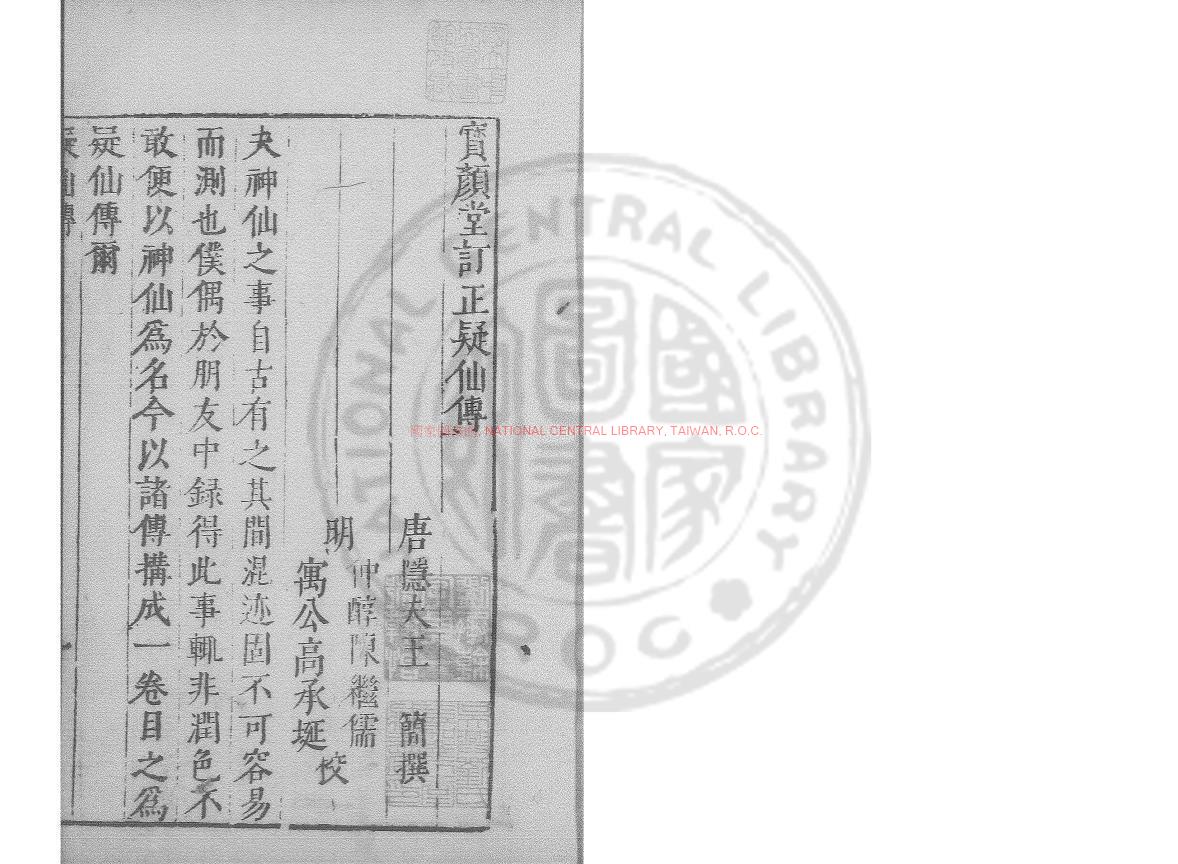 寶顏堂訂正疑仙傳
唐隱夫王 簡撰
明 仲醇陳繼儒
寓公高承埏 校
夫神仙之事自古有之其間混迹固不可容易
而測也僕偶於朋友中録得此事輒非潤色不
敢便以神仙爲名今以諸傳搆成一卷目之爲
疑仙傳爾
NATIONAL CENTRAL LIBRARY, TAIWAN, R.O.C.
NATIONAL CENTRAL LIBRARY
R.O.C
國家圖書